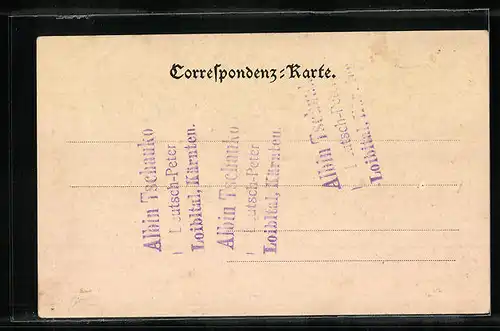 Correspondenz-Karte.
Albin Tschauko
Deutsch-Peter
Loibltal, Kärnten.
Albin Tschauko
Deutsch-Peter
Loibltal, Kärnten.
Albin
Loibltal,